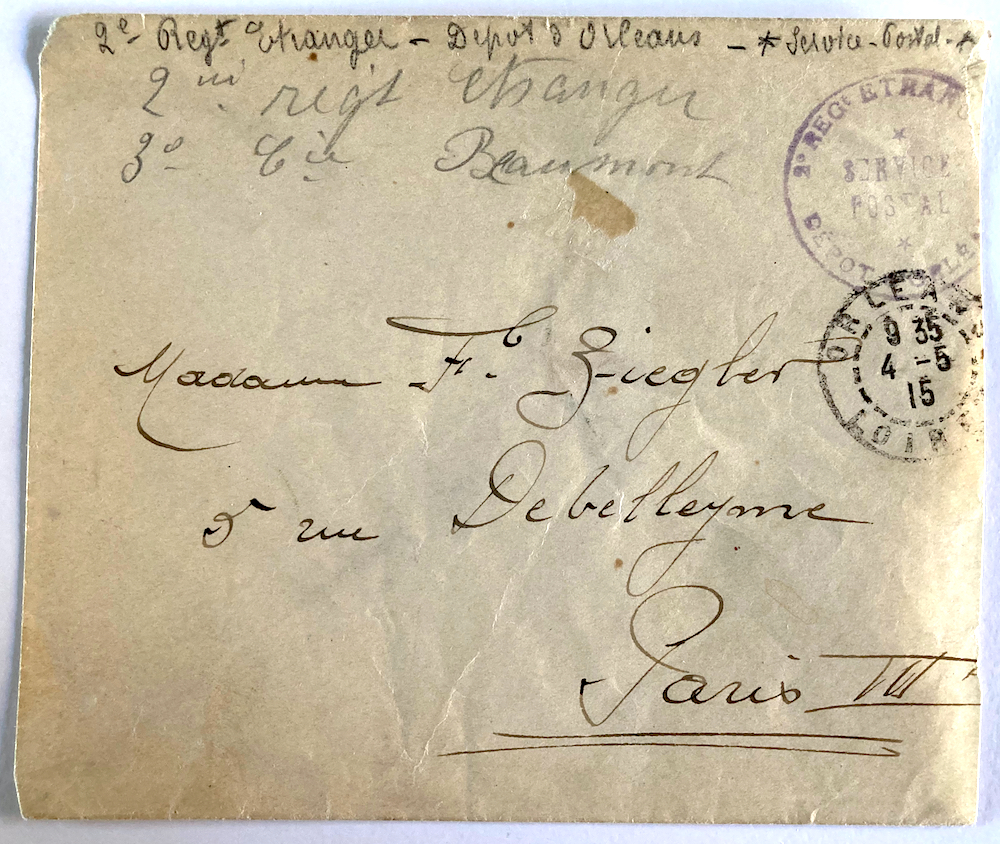 2e Regt Etranger - Depot d'Orléans - * Service - Postal - *
2me régt Etranger
3e Cie Beaumont
2e REGt ETRAN
*
SERVICE
POSTAL
*
DÉPOT
ORLEANS
9 35
4 - 5
15
LOIRE
Madame F. Ziegler
5 rue Debelleyme
Paris III e